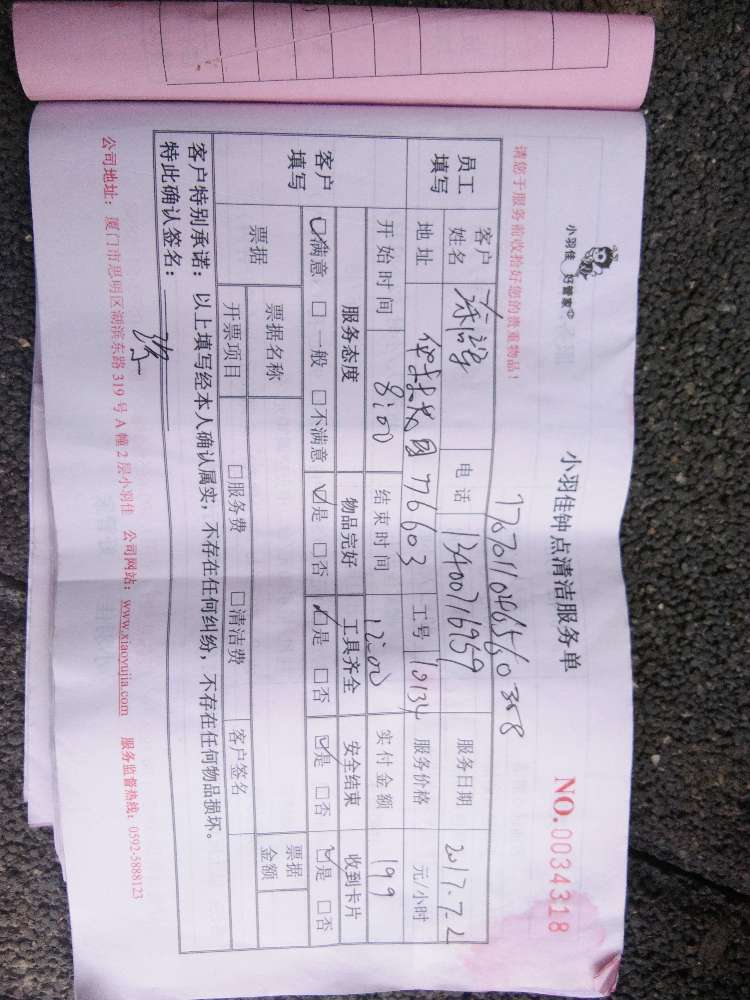 小羽佳 好管家
小羽佳钟点清洁服务单
NO.0034318
请您于服务前收拾好您的贵重物品！
员工填写 客户姓名 电话 13400716959 服务日期 2017.7.2
地址 776603 工号 10134 服务价格 元/小时
开始时间 8:00 结束时间 12:00 实付金额 199
客户填写 服务态度 物品完好 工具齐全 安全结束 收到卡片
☑满意 □一般 □不满意 ☑是 □否 ☑是 □否 ☑是 □否 ☑是 □否
票据 票据名称 票据金额
开票项目 □服务费 □清洁费 客户签名
客户特别承诺：以上填写经本人确认属实，不存在任何纠纷，不存在任何物品损坏。
特此确认签名：
公司地址：厦门市思明区湖滨东路319号A幢2层小羽佳 公司网站：www.xiaoyujia.com 服务监督热线：0592-5888123